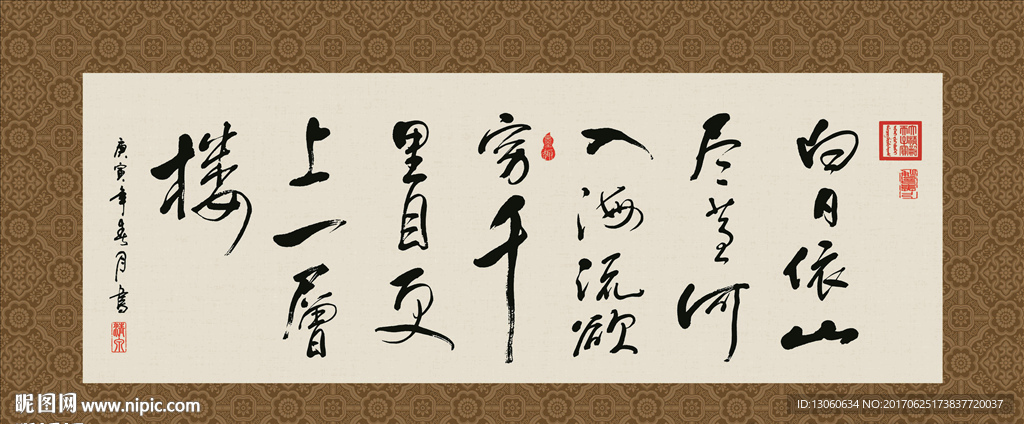 白日依山
尽黄河
入海流欲
穷千
里目更
上一層
楼
庚寅年春月書
昵图网 www.nipic.com
ID:13060634 NO:20170625173837720037